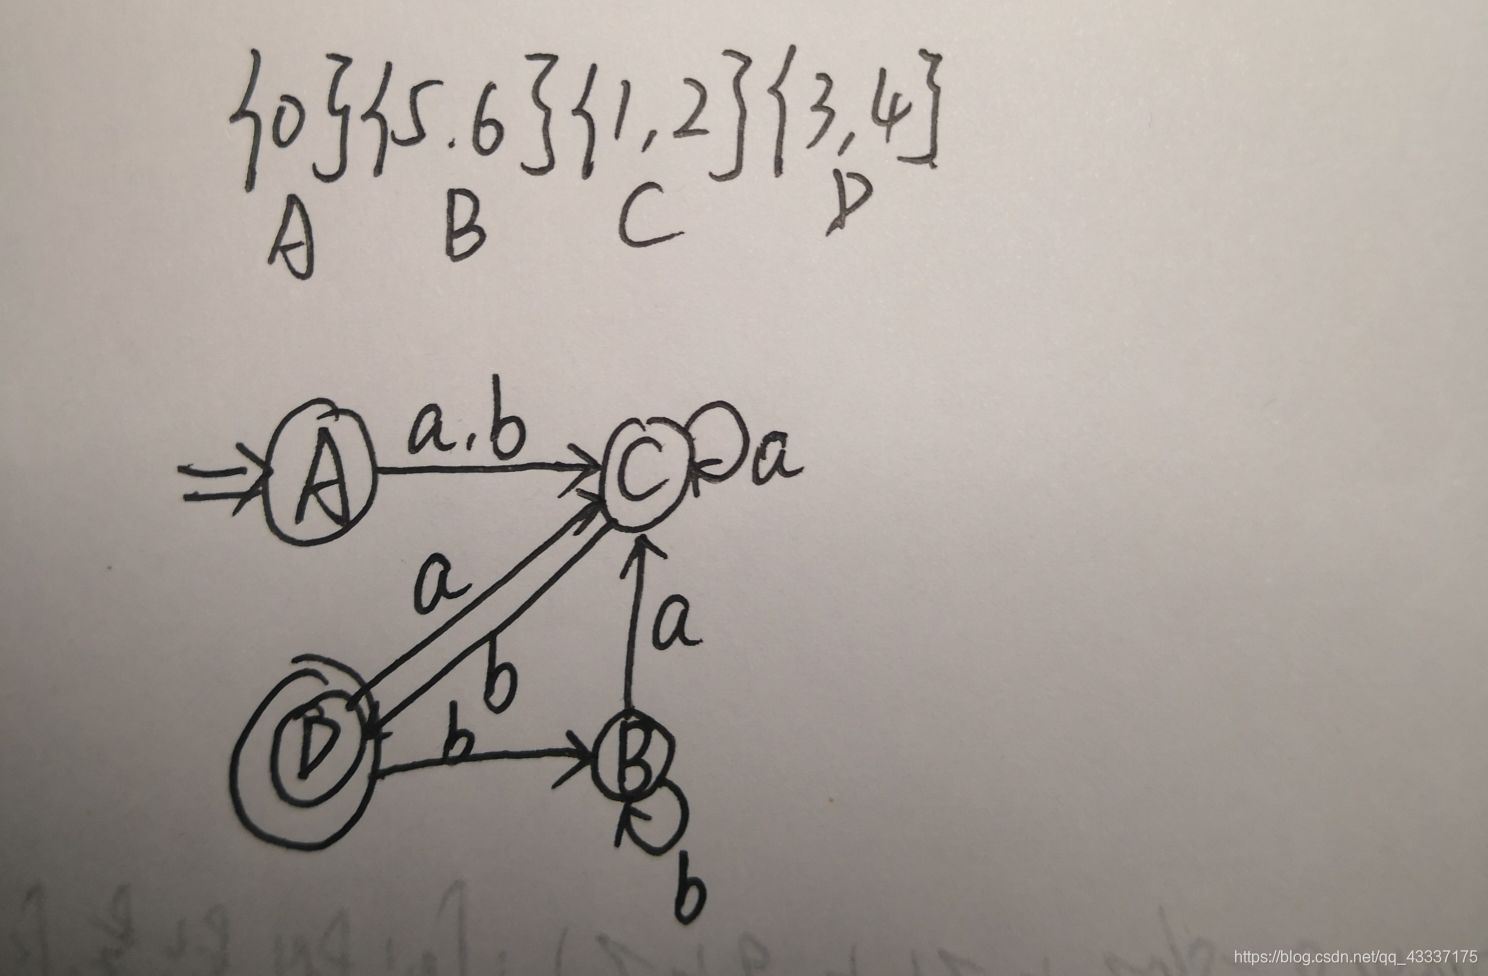 {0}{5.6}{1,2}{3,4}
A B C D
a.b
A C a
a
a
b
b
D B
b
https://blog.csdn.net/qq_43337175